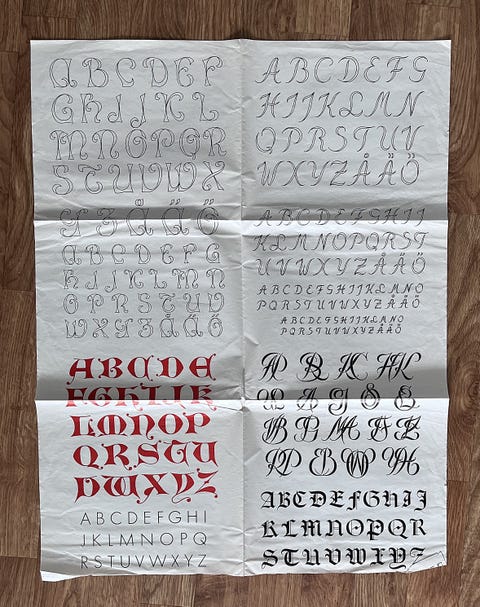 A B C D E F
G H I J K L
M N O P Q R
S T U V W X
Y Z Å Ä Ö
A B C D E F G
H I J K L M N
O P R S T U V
W X Y Z Å Ä Ö
A B C D E
F G H I J K
L M N O P
Q R S T U
V W X Y Z
A B C D E F G H I
J K L M N O P Q
R S T U V W X Y Z
A B C D E F G
H I J K L M N
O P R S T U V
W X Y Z Å Ä Ö
A B C D E F G H I J
K L M N O P Q R S T
U V W X Y Z Å Ä Ö
A B C D E F G H I J K L M N O
P Q R S T U V W X Y Z Å Ä Ö
A B C D E F G H I J K L M N O
P Q R S T U V W X Y Z Å Ä Ö
A B C D E F G H I J
K L M N O P Q R
S T U V W X Y Z